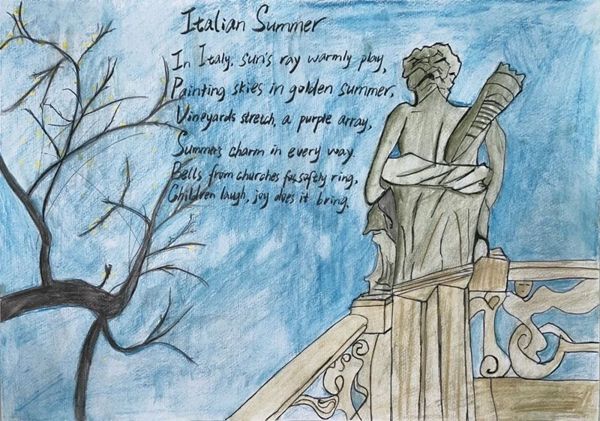 Italian Summer
In Italy, sun's ray warmly play,
Painting skies in golden summer,
Vineyards stretch, a purple array,
Summer's charm in every way.
Bells from churches far, softly ring,
Children laugh, joy does it bring.